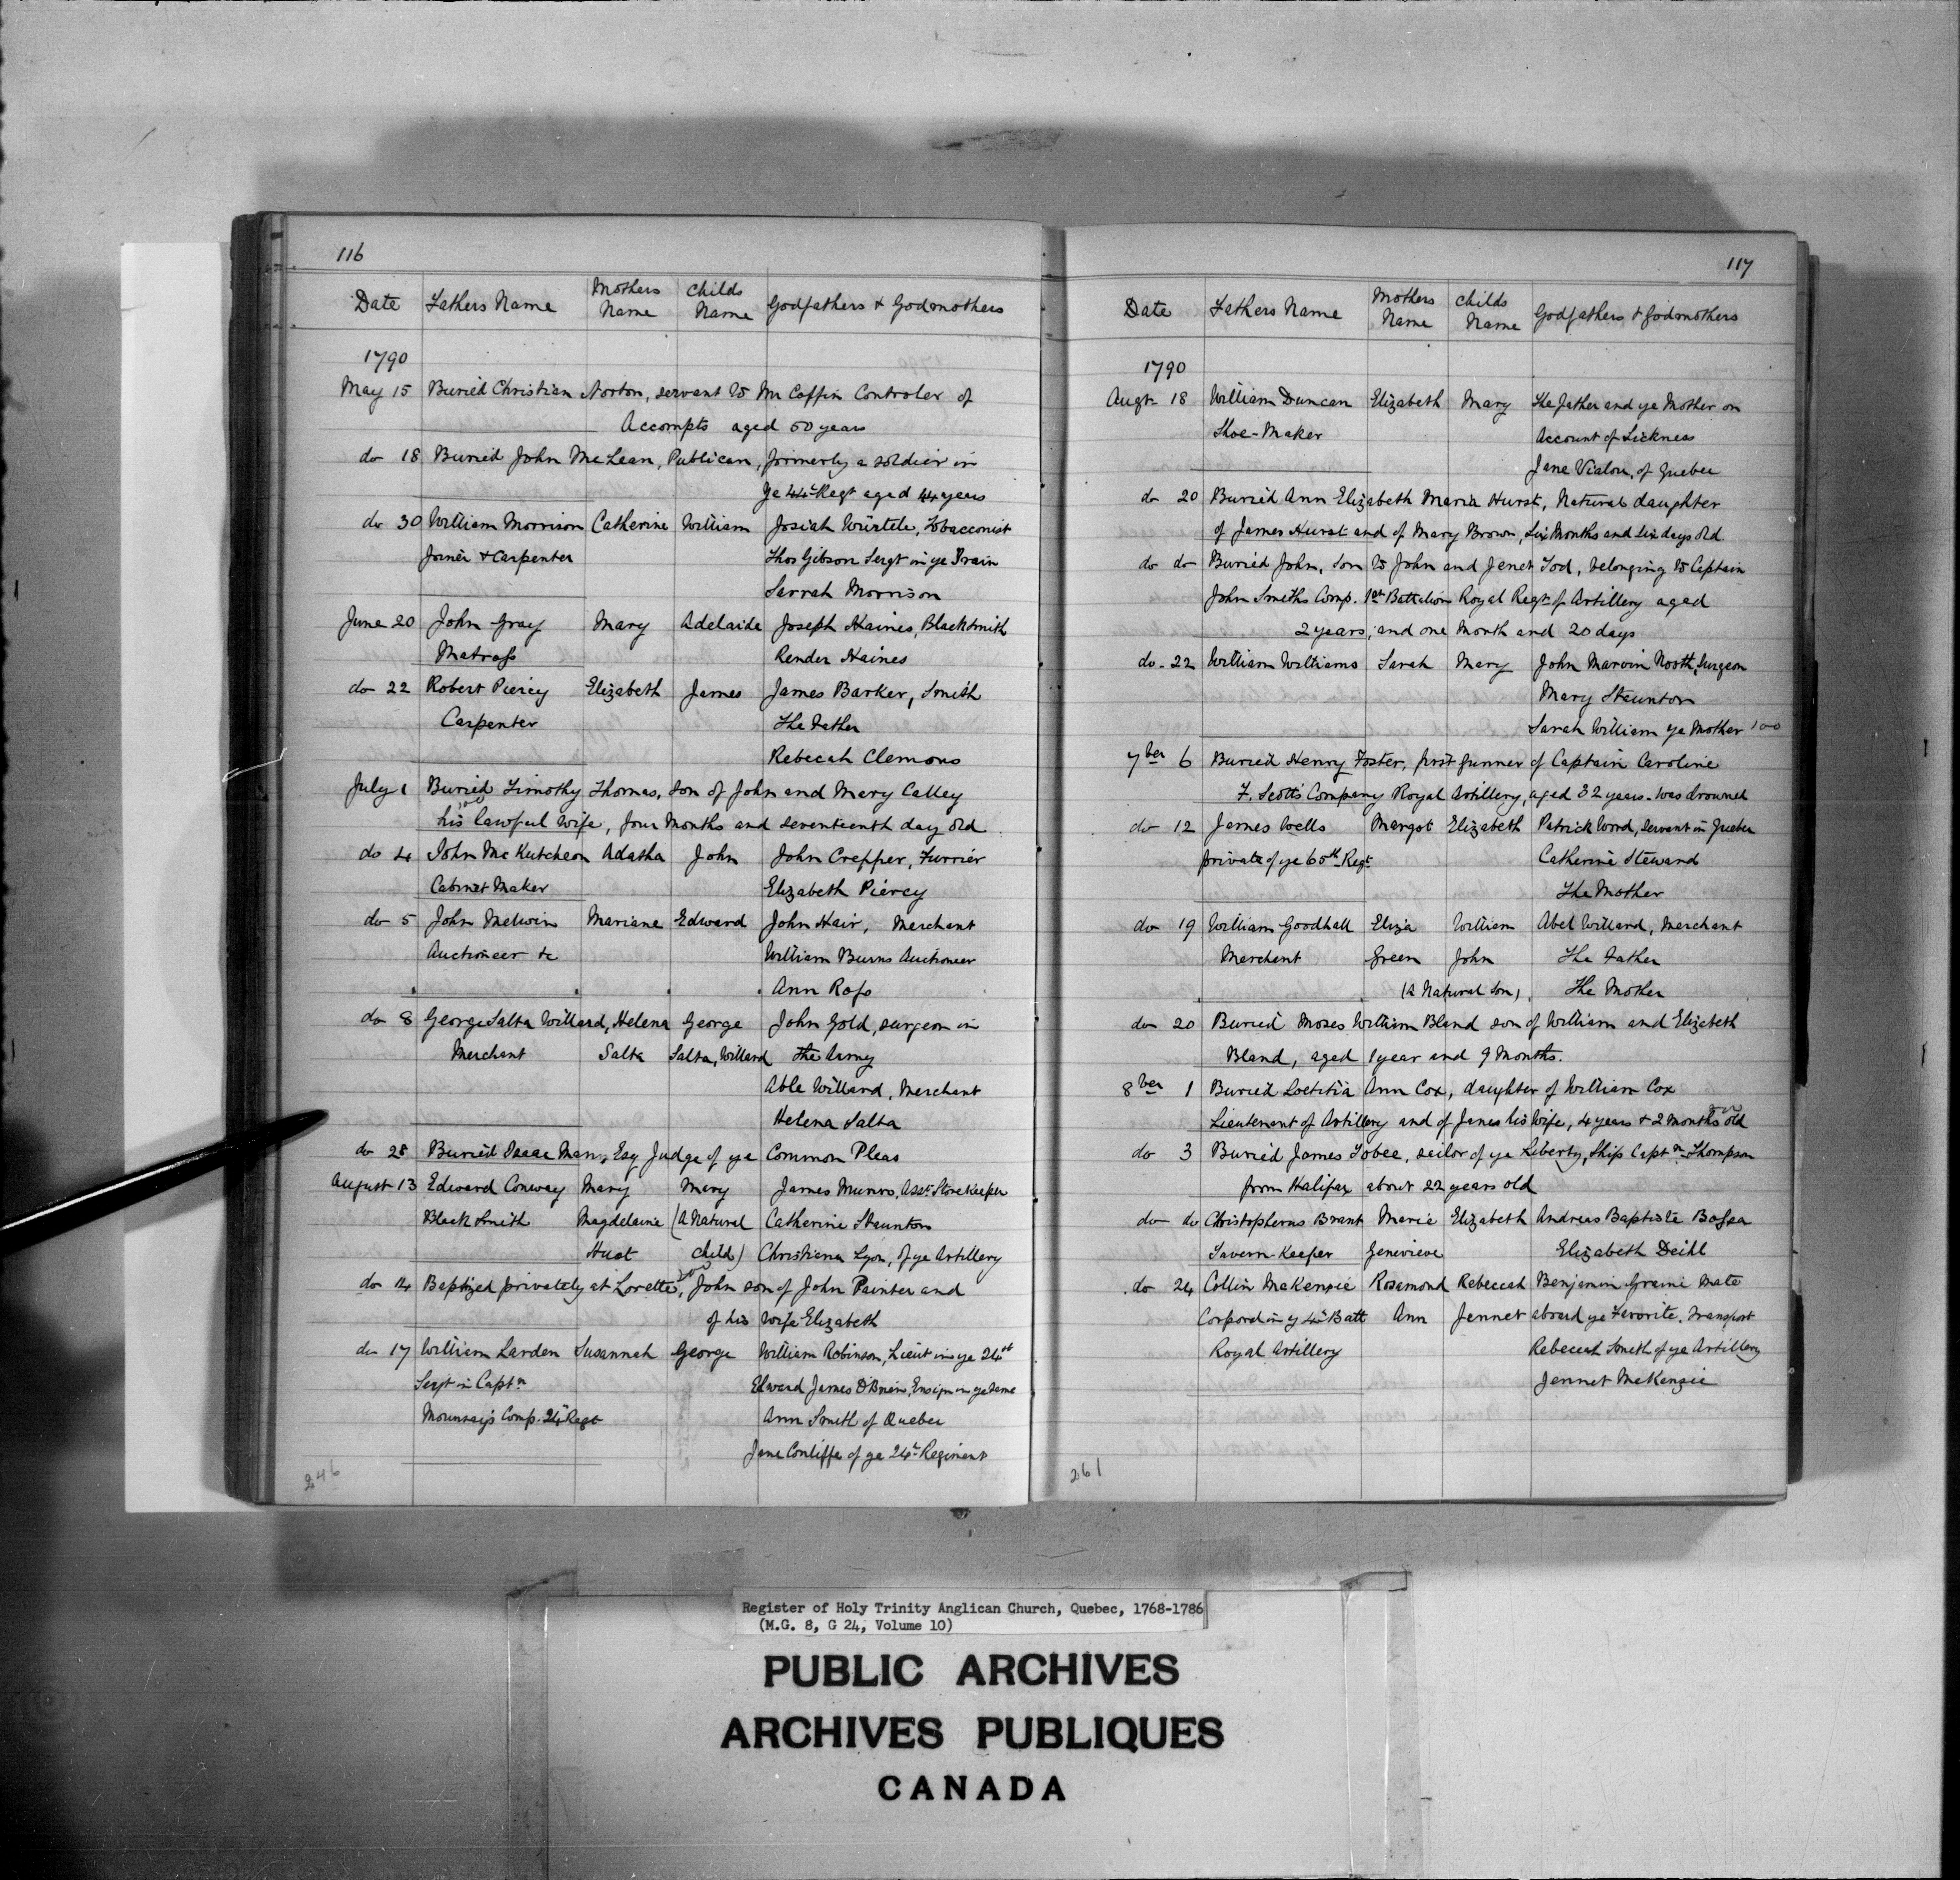 116
Date Fathers Name Mothers Name Childs Name Godfathers & Godmothers
1790
May 15 Buried Christian Norton, servant to Mr Coffin Controler of
Accompts aged 50 years
do 18 Buried John McLean, Publican, formerly a soldier in
ye 44t Regt aged 44 years
do 30 William Morrison Catherine William Josiah Würtele, Tobacconist
Joiner & Carpenter Thos Gibson Sergt in ye Train
Sarrah Morrison
June 20 John Gray Mary Adelaide Joseph Haines, Blacksmith
Matross Render Haines
do 22 Robert Piercy Elizabeth James James Barker, Smith
Carpenter The Father
Rebecah Clemons
July 1 Buried Timothy Thomas, son of John and Mary Calley
his lawful wife, four months and seventeenth day old
do 4 John McKutcheon Adatha John John Crepper, Furrier
Cabinet Maker Elizabeth Piercy
do 5 John Melwin Mariane Edward John Hair, Merchant
Auctioneer &c William Burns Auctioneer
Ann Ross
do 8 George Salta Willard, Helena George John Gold, surgeon in
Merchant Salta Salta, Willard the Army
Able Willard, Merchant
Helena Salta
do 28 Buried Isaac Man, Esq Judge of ye Common Pleas
August 13 Edward Conway Mary Mary James Munro, Asst. Store Keeper
Black Smith Magdelaine (A Natural Catherine Staunton
Huot child) Christiana Lyon, of ye Artillery
do 14 Baptized privately at Lorette, John son of John Painter and
of his Wife Elizabeth
do 17 William Larden Susannah George William Robinson, Lieut in ye 24th
Sergt in Captn Edward James O'Brien, Ensign in ye same
Mounsey's Comp. 24t Regt Ann Smith of Quebec
Jane Conliffe of ye 24t Regiment
246
117
Date Fathers Name Mothers Name Childs Name Godfathers & Godmothers
1790
Augt 18 William Duncan Elizabeth Mary The father and ye Mother on
Shoe-Maker Account of Sickness
Jane Vialou, of Quebec
do 20 Buried Ann Elizabeth Maria Hurst, Natural daughter
of James Hurst and of Mary Brown, Six Months and Six days old
do do Buried John, Son to John and Jenet Tod, belonging to Captain
John Smiths Comp. 1st Battalion Royal Regt of Artillery aged
2 years, and one Month and 20 days
do. 22 William Williams Sarah Mary John Marvin Nooth, Surgeon
Mary Staunton
Sarah William ye Mother
7ber 6 Buried Henry Foster, first gunner of Captain Caroline
F. Scott's Company Royal Artillery, aged 32 years - was drowned
do 12 James Wells Margot Elizabeth Patrick Word, Servant in Quebec
private of ye 60th Regt Catherine Steward
The Mother
do 19 William Goodhall Eliza William Abel Willard, Merchant
Merchant Green John The Father
(A Natural Son) The Mother
do 20 Buried Moses William Bland son of William and Elizabeth
Bland, aged 1 year and 9 Months.
8ber 1 Buried Loetitia Ann Cox, daughter of William Cox
Lieutenant of Artillery and of James his Wife, 4 years & 2 months old
do 3 Buried James Tobee, sailor of ye Liberty, Ship Captn Thompson
from Halifax about 22 years old
do do Christopherus Brant Marie Elizabeth Andreas Baptiste Bossa
Tavern-Keeper Genevieve Elizabeth Deihl
do 24 Collin McKenzie Rosamond Rebeccah Benjamin Greime Mate
Corporal in y 4t Batt Ann Jennet aboard ye Favorite, Transport
Royal Artillery Rebeccah Smith of ye Artillery
Jennet McKenzie
261
Register of Holy Trinity Anglican Church, Quebec, 1768-1786
(M.G. 8, G 24, Volume 10)
PUBLIC ARCHIVES
ARCHIVES PUBLIQUES
CANADA